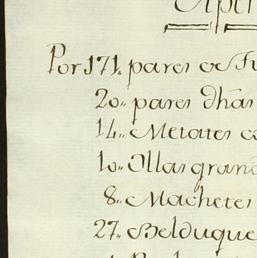 Por 171. pares de
20.. pares dhãs
14.. Metates
10.. Ollas grand
8.. Machetes
27.. Belduque